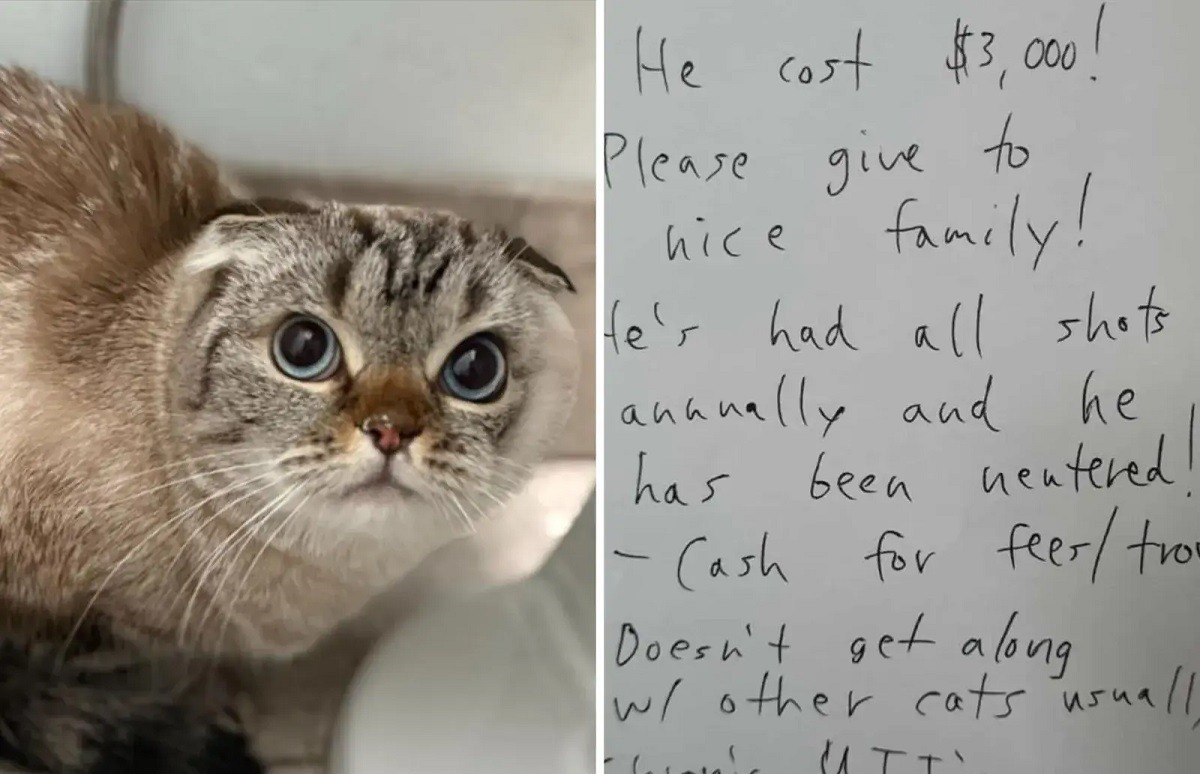 He cost $3,000!
Please give to
nice family!
He's had all shots
annually and he
has been neutered!
- Cash for fees/trou
Doesn't get along
w/ other cats usually